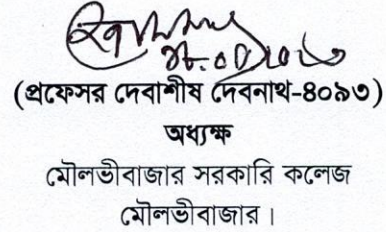 (প্রফেসর দেবাশীষ দেবনাথ-৪০৯৩)
অধ্যক্ষ
মৌলভীবাজার সরকারি কলেজ
মৌলভীবাজার।